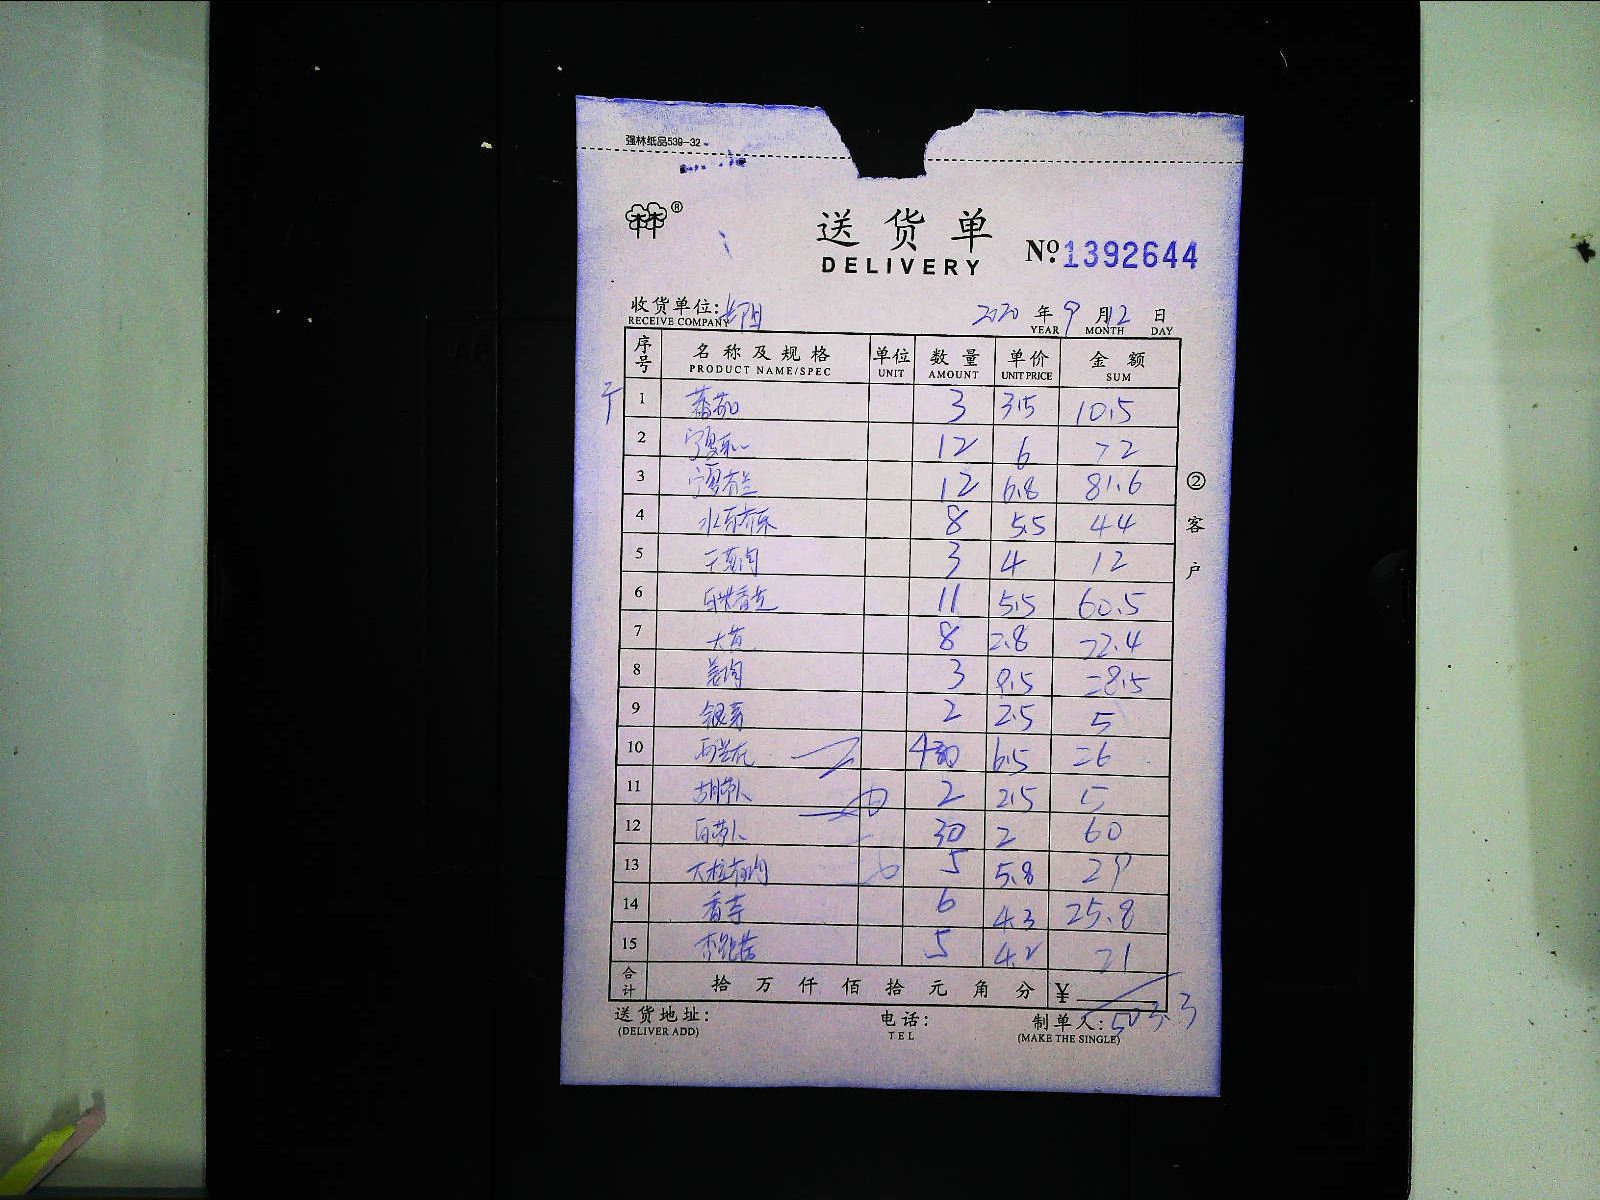 强林纸品539-32
林林®
送货单
DELIVERY
No.1392644
收货单位: 2020年9月12日
RECEIVE COMPANY YEAR MONTH DAY
序号 名称及规格 单位 数量 单价 金额
PRODUCT NAME/SPEC UNIT AMOUNT UNIT PRICE SUM
1 番茄 3 3.5 10.5
2 12 6 72
3 12 6.8 81.6
4 8 5.5 44
5 3 4 12
6 11 5.5 60.5
7 8 2.8 22.4
8 3 9.5 28.5
9 银芽 2 2.5 5
10 西兰花 4 6.5 26
11 胡萝卜 2 2.5 5
12 白萝卜 30 2 60
13 5 5.8 29
14 香芋 6 4.3 25.8
15 杏鲍菇 5 4.2 21
合计 拾万仟佰拾元角分 ¥ 503.3
送货地址: 电话: 制单人:
(DELIVER ADD) TEL (MAKE THE SINGLE)
②客户